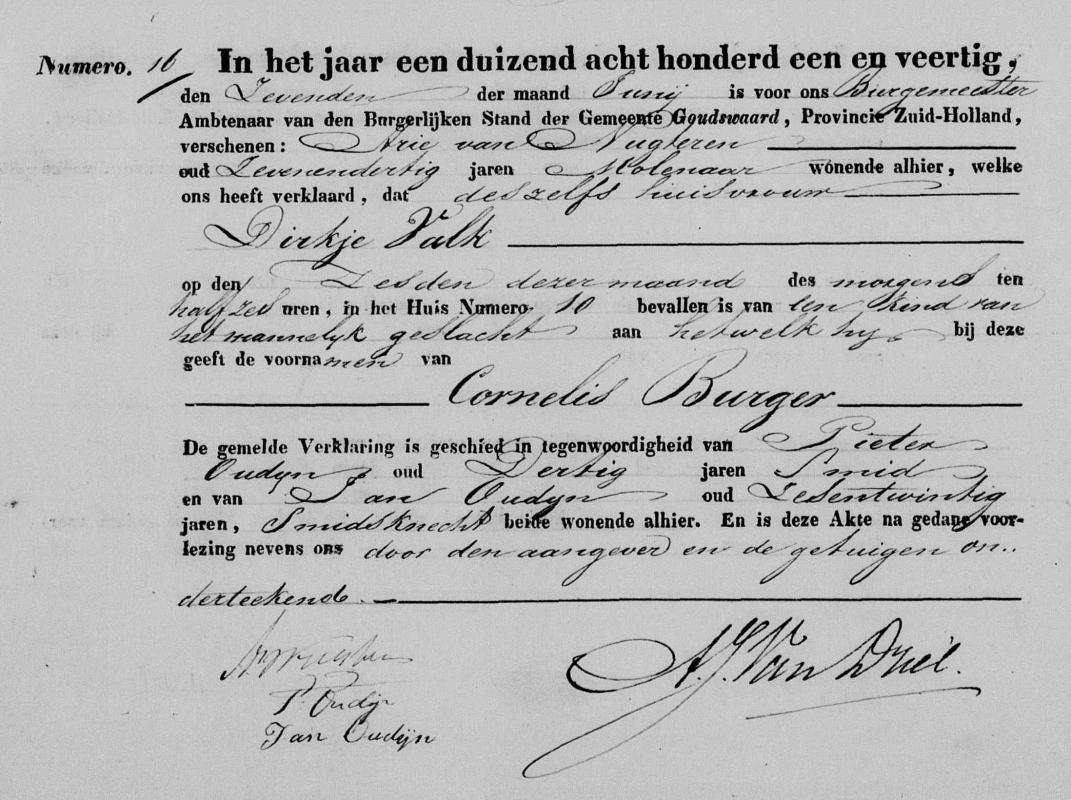 Numero. 16 In het jaar een duizend acht honderd een en veertig,
den Zevenden der maand Junij is voor ons Burgemeester
Ambtenaar van den Burgerlijken Stand der Gemeente Goudswaard, Provincie Zuid-Holland,
verschenen: Arie van Nugteren
oud Zevenendertig jaren Molenaar wonende alhier, welke
ons heeft verklaard, dat deszelfs huisvrouw
Dirkje Valk
op den Zesden dezer maand des morgens ten
half zes uren, in het Huis Numero 10 bevallen is van een kind van
het mannelyk geslacht aan hetwelk hy bij deze
geeft de voornamen van
Cornelis Burger
De gemelde Verklaring is geschied in tegenwoordigheid van Pieter
Oudyn oud Dertig jaren Smid
en van Jan Oudyn oud Zesentwintig
jaren, Smidsknecht beide wonende alhier. En is deze Akte na gedane voor-
lezing nevens ons door den aangever en de getuigen on..
derteekend.
A. J. Van Driel.
P. Oudijn
Jan Oudijn